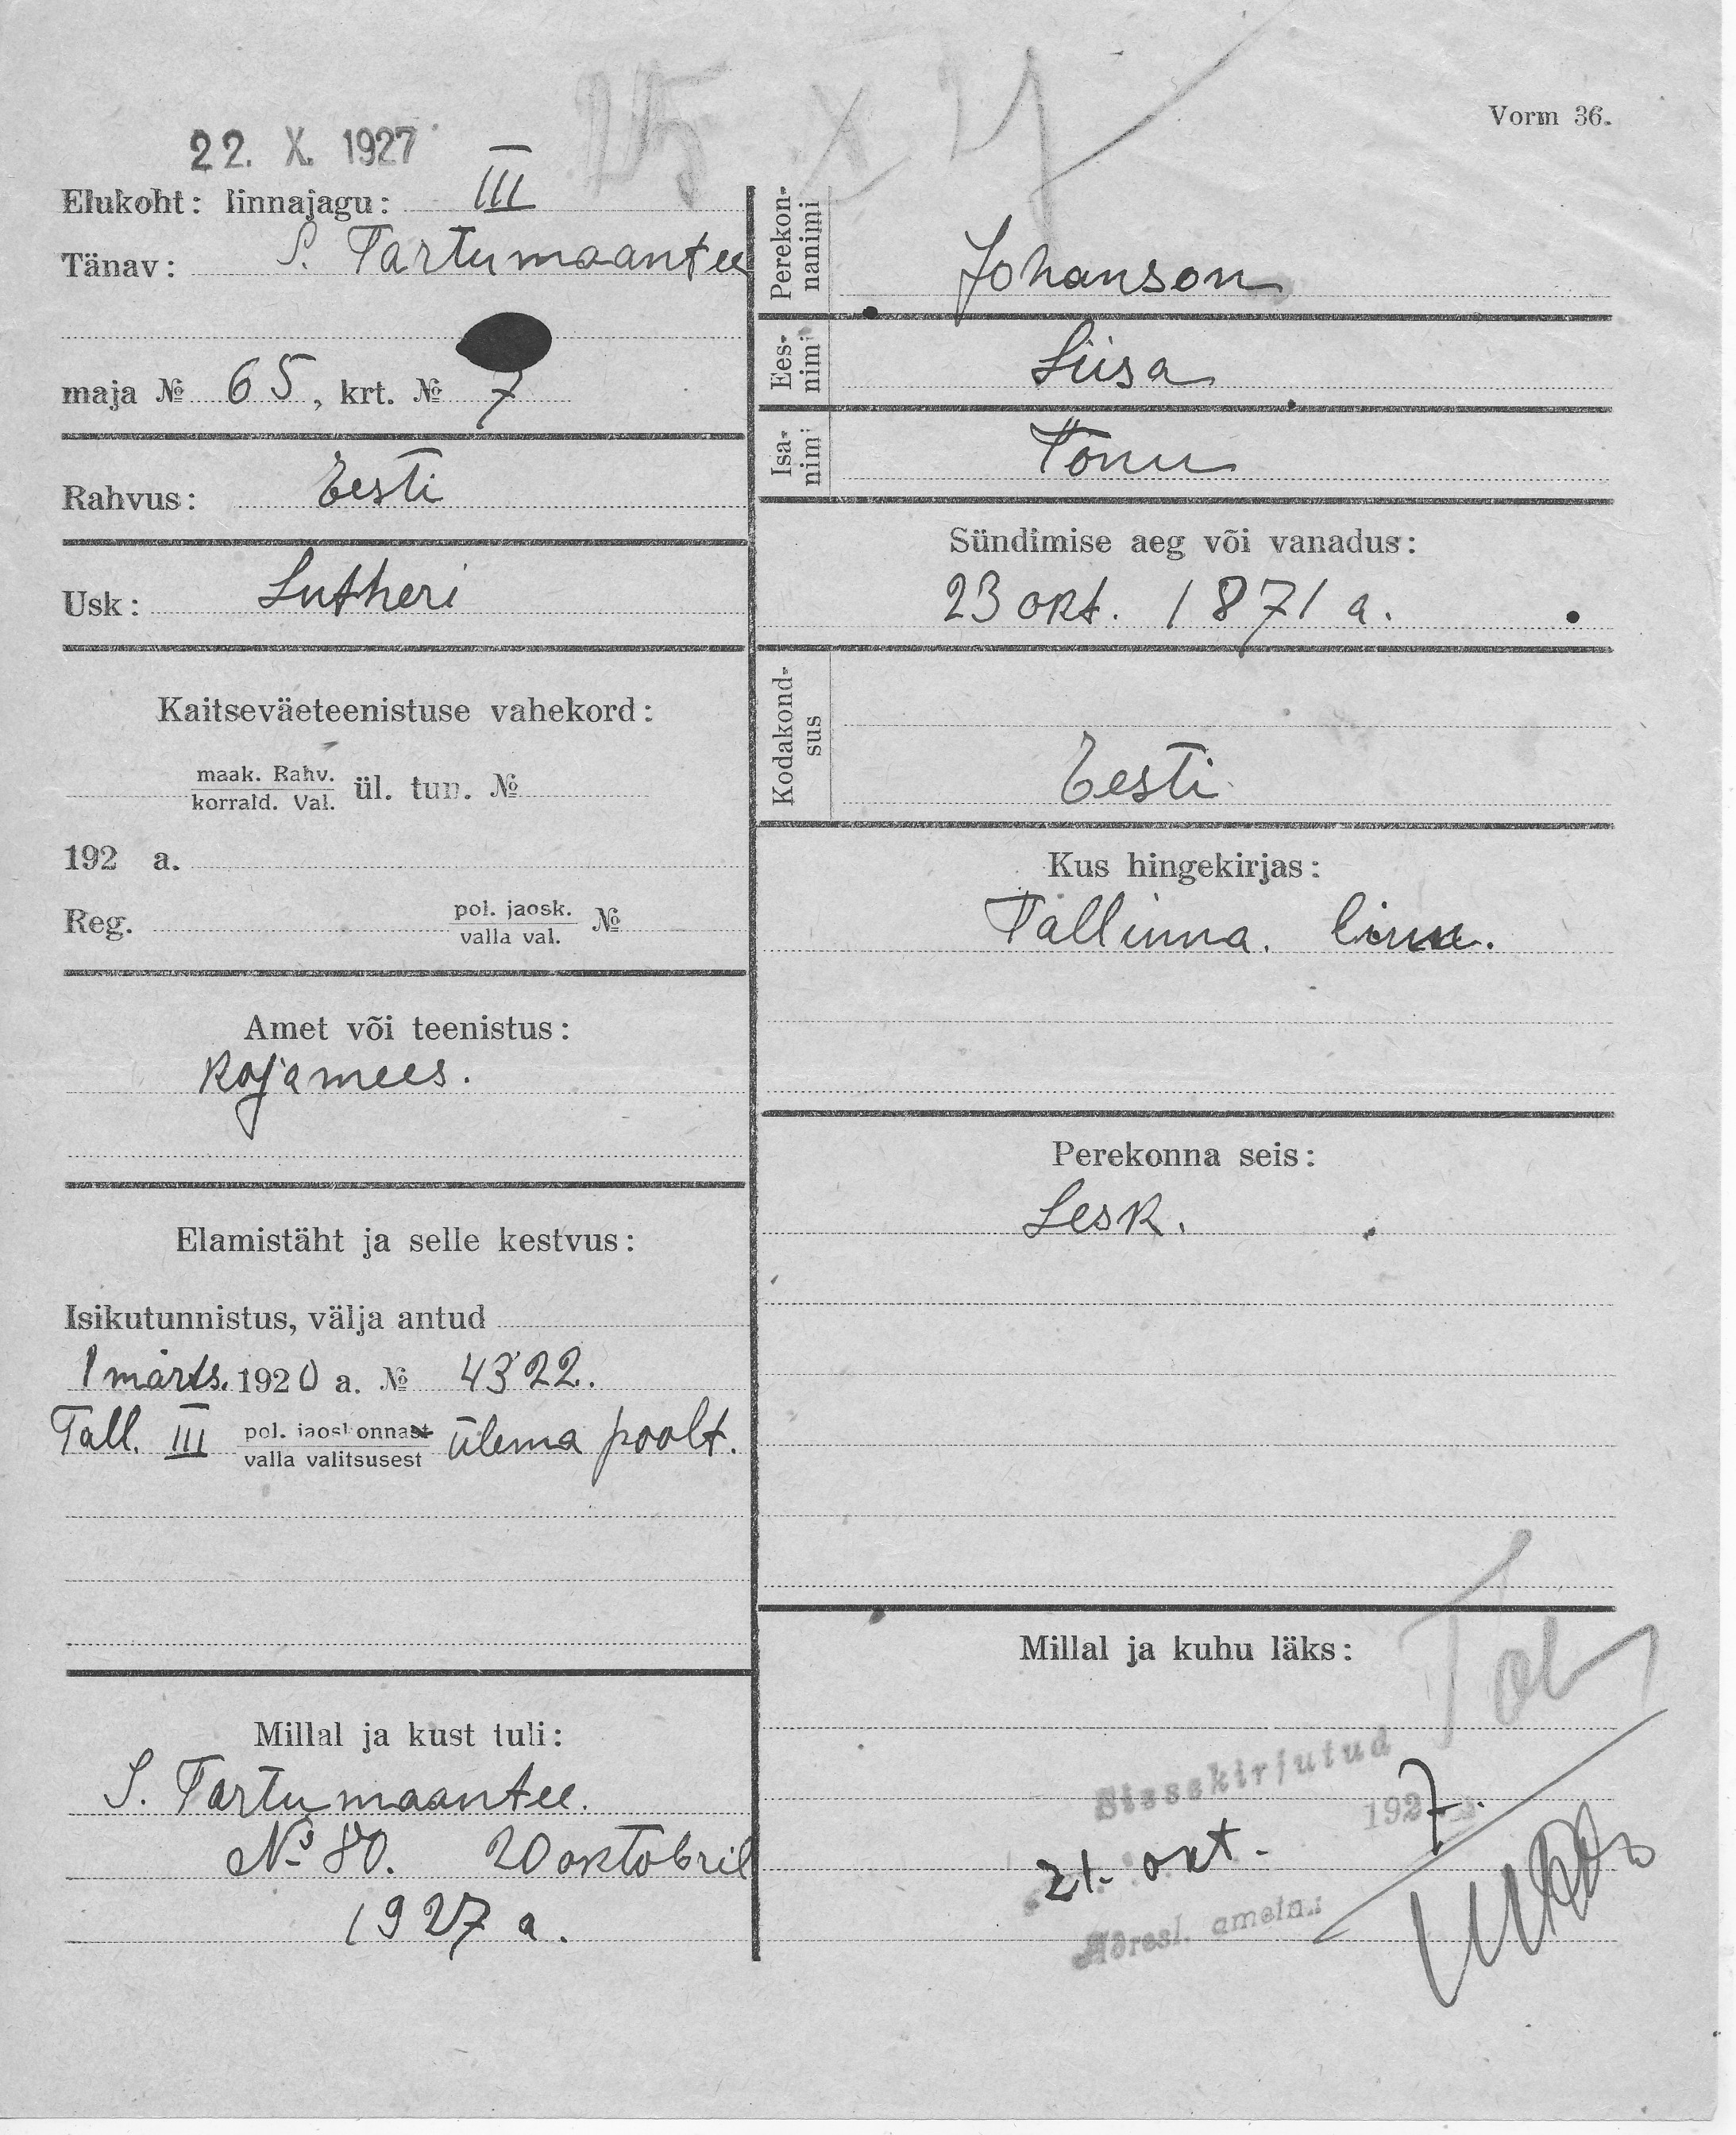 25 X 27
Vorm 36.
22. X. 1927
Elukoht: linnajagu: III
Tänav: S. Tartumaantee
maja № 65, krt. № 7
Rahvus: Eesti
Usk: Lutheri
Kaitseväeteenistuse vahekord:
maak. Rahv.
korrald. Val. ül. tun. №
192 a.
Reg. pol. jaosk.
valla val. №
Amet või teenistus:
Kojamees.
Elamistäht ja selle kestvus:
Isikutunnistus, välja antud
1 märts. 1920 a. № 4322.
Tall. III pol. jaoskonnast ülema poolt.
valla valitsusest
Millal ja kust tuli:
S. Tartu maantee.
№ 80. 20 oktobril
1927 a.
Perekonnanimi
Johanson
Eesnimi
Liisa
Isanimi
Tõnu
Sündimise aeg või vanadus:
23 okt. 1871 a.
Kodakondsus
Eesti
Kus hingekirjas:
Tallinna. linn.
Perekonna seis:
Lesk.
Millal ja kuhu läks:
Sissekirjutud
21. okt. 1927.
Adresl. ametn.: